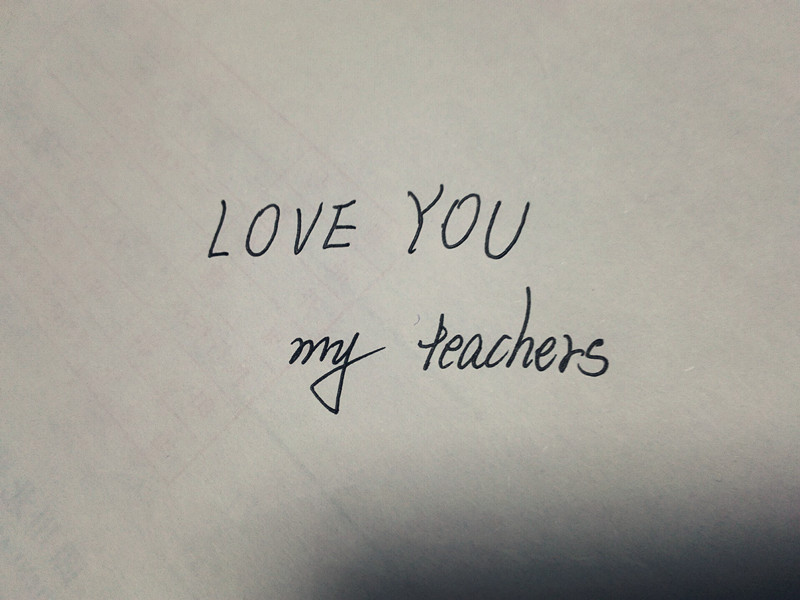 LOVE YOU
my teachers